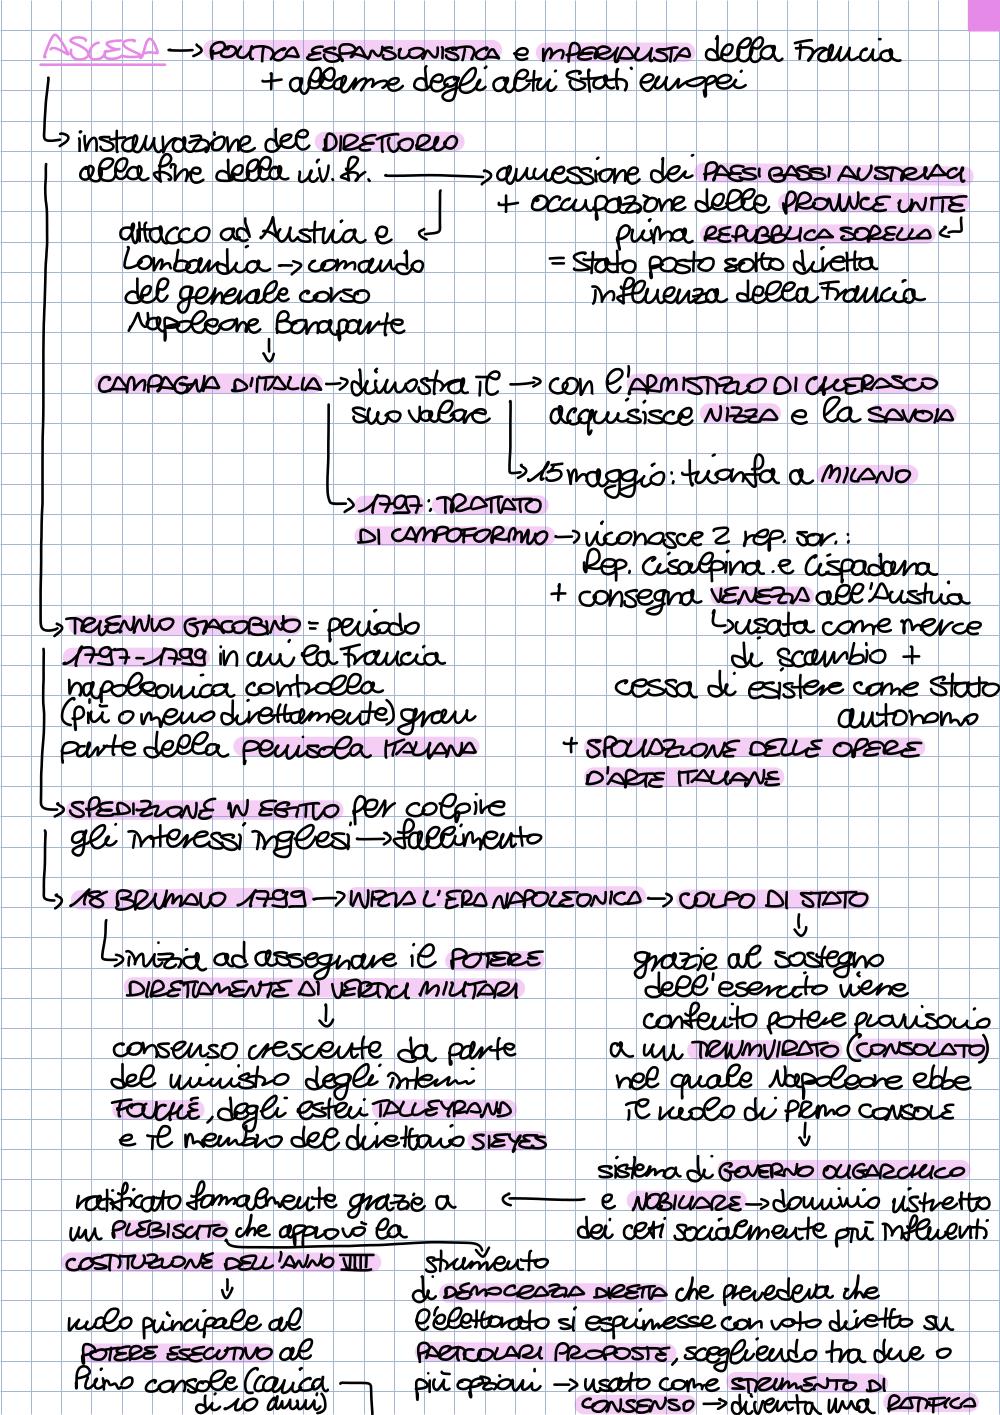 ASCESA → POLITICA ESPANSIONISTICA e IMPERIALISTA della Francia
+ allarme degli altri Stati europei
→ instaurazione del DIRETTORIO
alla fine della riv. fr. → annessione dei PAESI BASSI AUSTRIACI
+ occupazione delle PROVINCE UNITE
prima REPUBBLICA SORELLA
= Stato posto sotto diretta
influenza della Francia
attacco ad Austria e
Lombardia → comando
del generale corso
Napoleone Bonaparte
↓
CAMPAGNA D'ITALIA → dimostra il → con l'ARMISTIZIO DI CHERASCO
suo valore acquisisce NIZZA e la SAVOIA
→ 15 maggio: trionfa a MILANO
→ 1797: TRATTATO
DI CAMPOFORMIO → riconosce 2 rep. sor.:
Rep. Cisalpina e Cispadana
+ consegna VENEZIA all'Austria
→ usata come merce
di scambio +
cessa di esistere come Stato
autonomo
+ SPOLIAZIONE DELLE OPERE
D'ARTE ITALIANE
→ TRIENNIO GIACOBINO = periodo
1797-1799 in cui la Francia
napoleonica controlla
(più o meno direttamente) gran
parte della penisola ITALIANA
→ SPEDIZIONE IN EGITTO per colpire
gli interessi inglesi → fallimento
→ 18 BRUMAIO 1799 → INIZIA L'ERA NAPOLEONICA → COLPO DI STATO
→ inizia ad assegnare il POTERE
DIRETTAMENTE AI VERTICI MILITARI
↓
consenso crescente da parte
del ministro degli interni
FOUCHÉ, degli esteri TALLEYRAND
e il membro del direttorio SIEYES
↓
grazie al sostegno
dell'esercito viene
conferito potere provvisorio
a un TRIUMVIRATO (CONSOLATO)
nel quale Napoleone ebbe
il ruolo di PRIMO CONSOLE
↓
sistema di GOVERNO OLIGARCHICO
e NOBILIARE → dominio ristretto
dei ceti socialmente più influenti
ratificato formalmente grazie a
un PLEBISCITO che approvò la
COSTITUZIONE DELL'ANNO VIII
↓
ruolo principale al
POTERE ESECUTIVO al
Primo console (carica
di 10 anni)
strumento
di DEMOCRAZIA DIRETTA che prevedeva che
l'elettorato si esprimesse con voto diretto su
PARTICOLARI PROPOSTE, scegliendo tra due o
più opzioni → usato come STRUMENTO DI
CONSENSO → diventa una RATIFICA